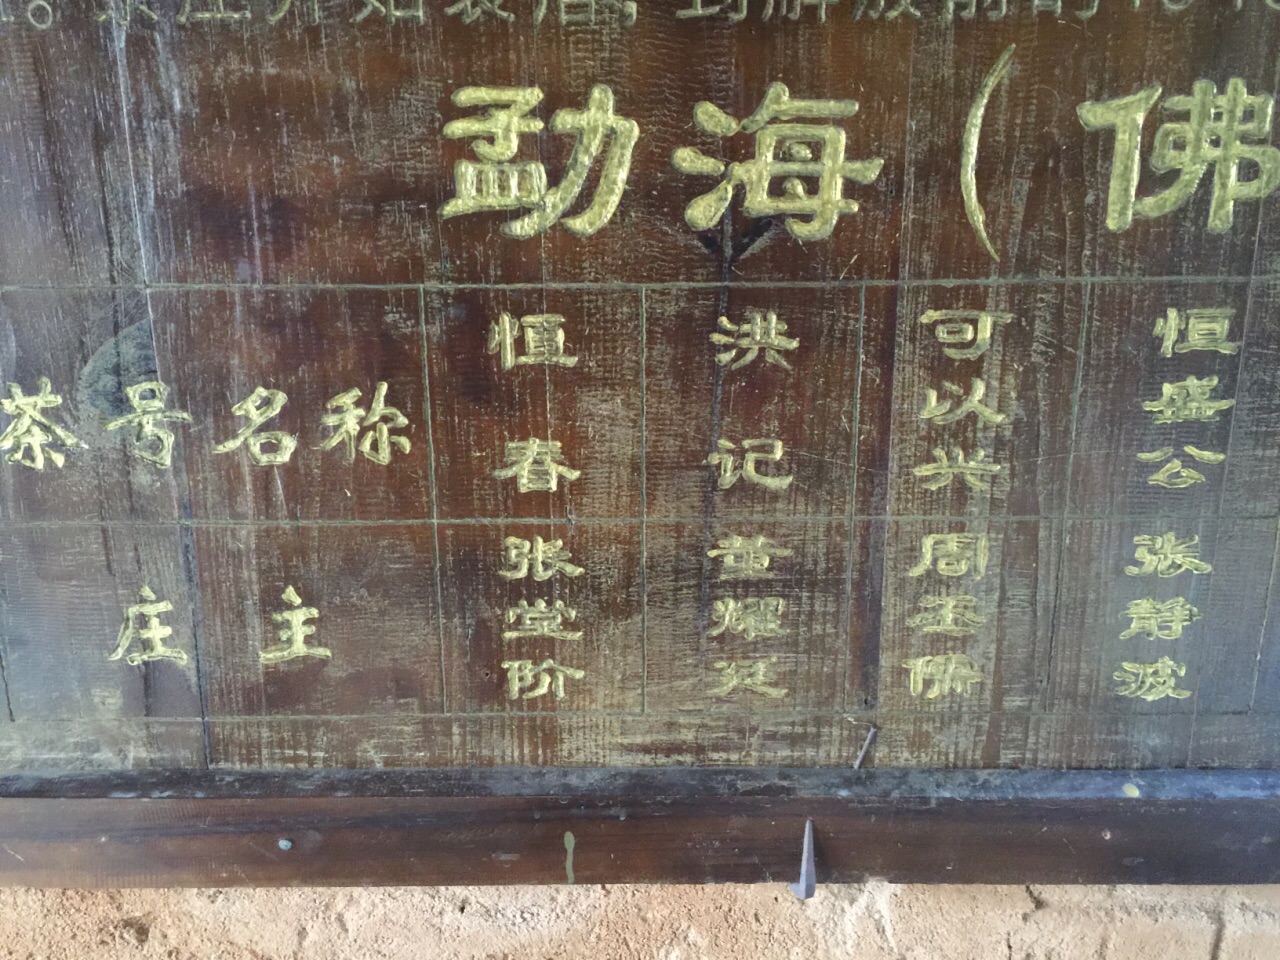 勐海（佛
茶号名称 恒春 洪记 可以兴 恒盛公
庄主 张堂阶 董耀廷 周丕儒 张静波